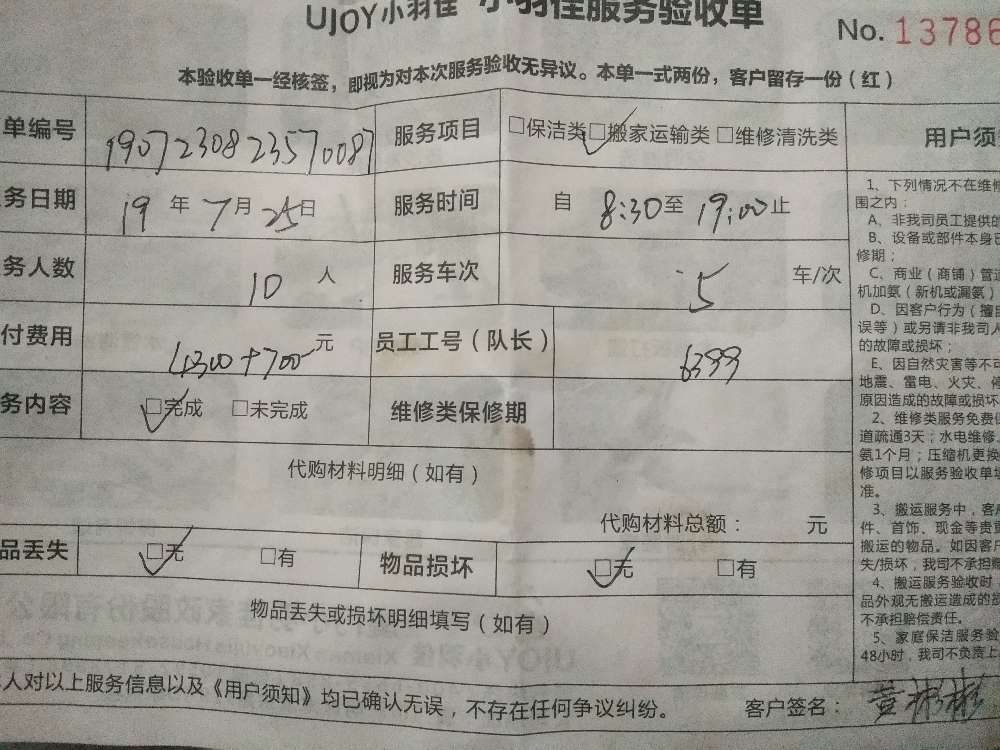 UJOY小羽佳 小羽佳服务验收单
No. 13786
本验收单一经核签，即视为对本次服务验收无异议。本单一式两份，客户留存一份（红）
单编号 1907230823570087 服务项目 □保洁类 ☑搬家运输类 □维修清洗类
务日期 19年7月25日 服务时间 自8:30至19:00止
务人数 10人 服务车次 5 车/次
付费用 4300+700元 员工工号（队长） 6399
务内容 ☑完成 □未完成 维修类保修期
代购材料明细（如有）
代购材料总额： 元
品丢失 ☑无 □有 物品损坏 ☑无 □有
物品丢失或损坏明细填写（如有）
人对以上服务信息以及《用户须知》均已确认无误，不存在任何争议纠纷。 客户签名：黄彬彬
用户须
1、下列情况不在维修
围之内：
A、非我司员工提供的
B、设备或部件本身已
修期；
C、商业（商铺）管道
机加氨（新机或漏氨）
D、因客户行为（擅自
误等）或另请非我司人
的故障或损坏；
E、因自然灾害等不可
地震、雷电、火灾、
原因造成的故障或损坏
2、维修类服务免费保
道疏通3天；水电维修
氨1个月；压缩机更换
修项目以服务验收单填
准。
3、搬运服务中，客户
件、首饰、现金等贵重
搬运的物品。如因客户
失/损坏，我司不承担赔
4、搬运服务验收时
品外观无搬运造成的损
不承担赔偿责任。
5、家庭保洁服务验
48小时，我司不负责上